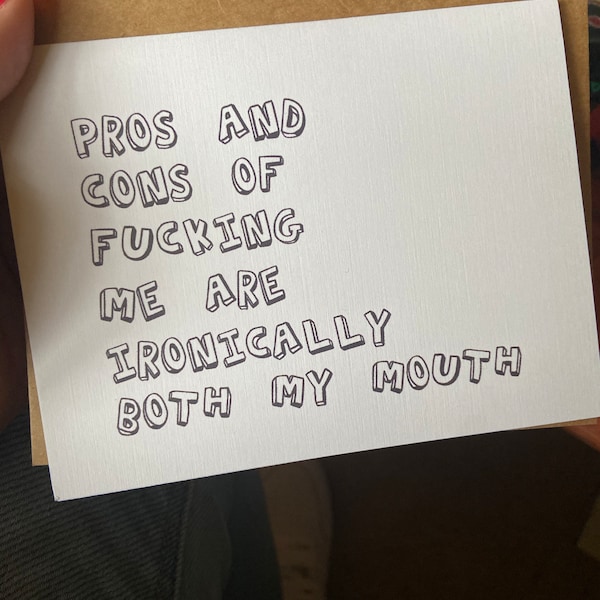 PROS AND
CONS OF
FUCKING
ME ARE
IRONICALLY
BOTH MY MOUTH